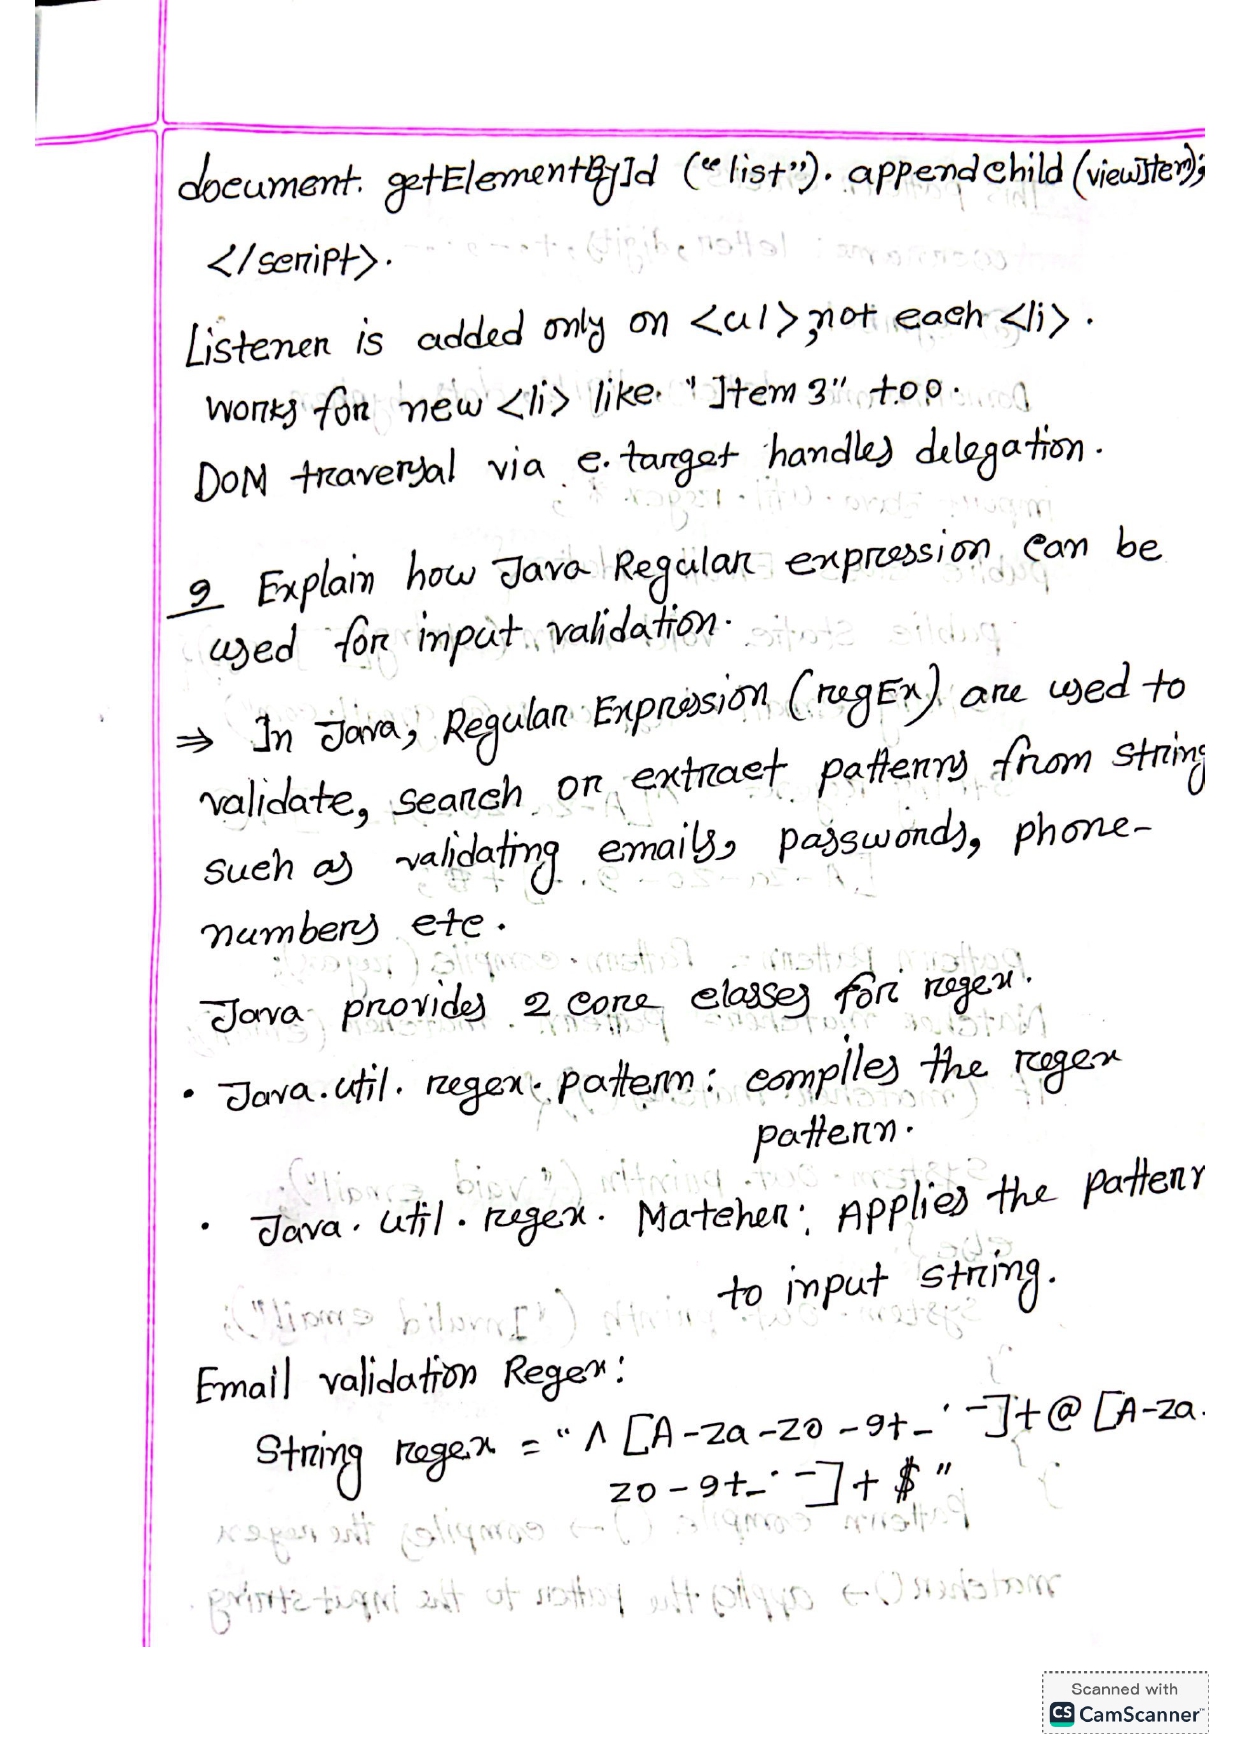 document. getElementById ("list"). appendchild (viewItem);
</script>.
Listener is added only on <ul>, not each <li>.
works for new <li> like "Item 3" too.
DOM traversal via e. target handles delegation.
9 Explain how Java Regular expression can be
used for input validation.
⇒ In Java, Regular Expression (regEx) are used to
validate, search or extract patterns from string
such as validating emails, passwords, phone-
numbers etc.
Java provides 2 core classes for regex.
• Java.util. regex. pattern: compiles the regex
pattern.
• Java. util. regex. Matcher: Applies the pattern
to input string.
Email validation Regex:
String regex = "^ [A-Za-z0-9+_.-]+@ [A-Za-
z0-9+_.-]+$"
Scanned with
CS CamScanner